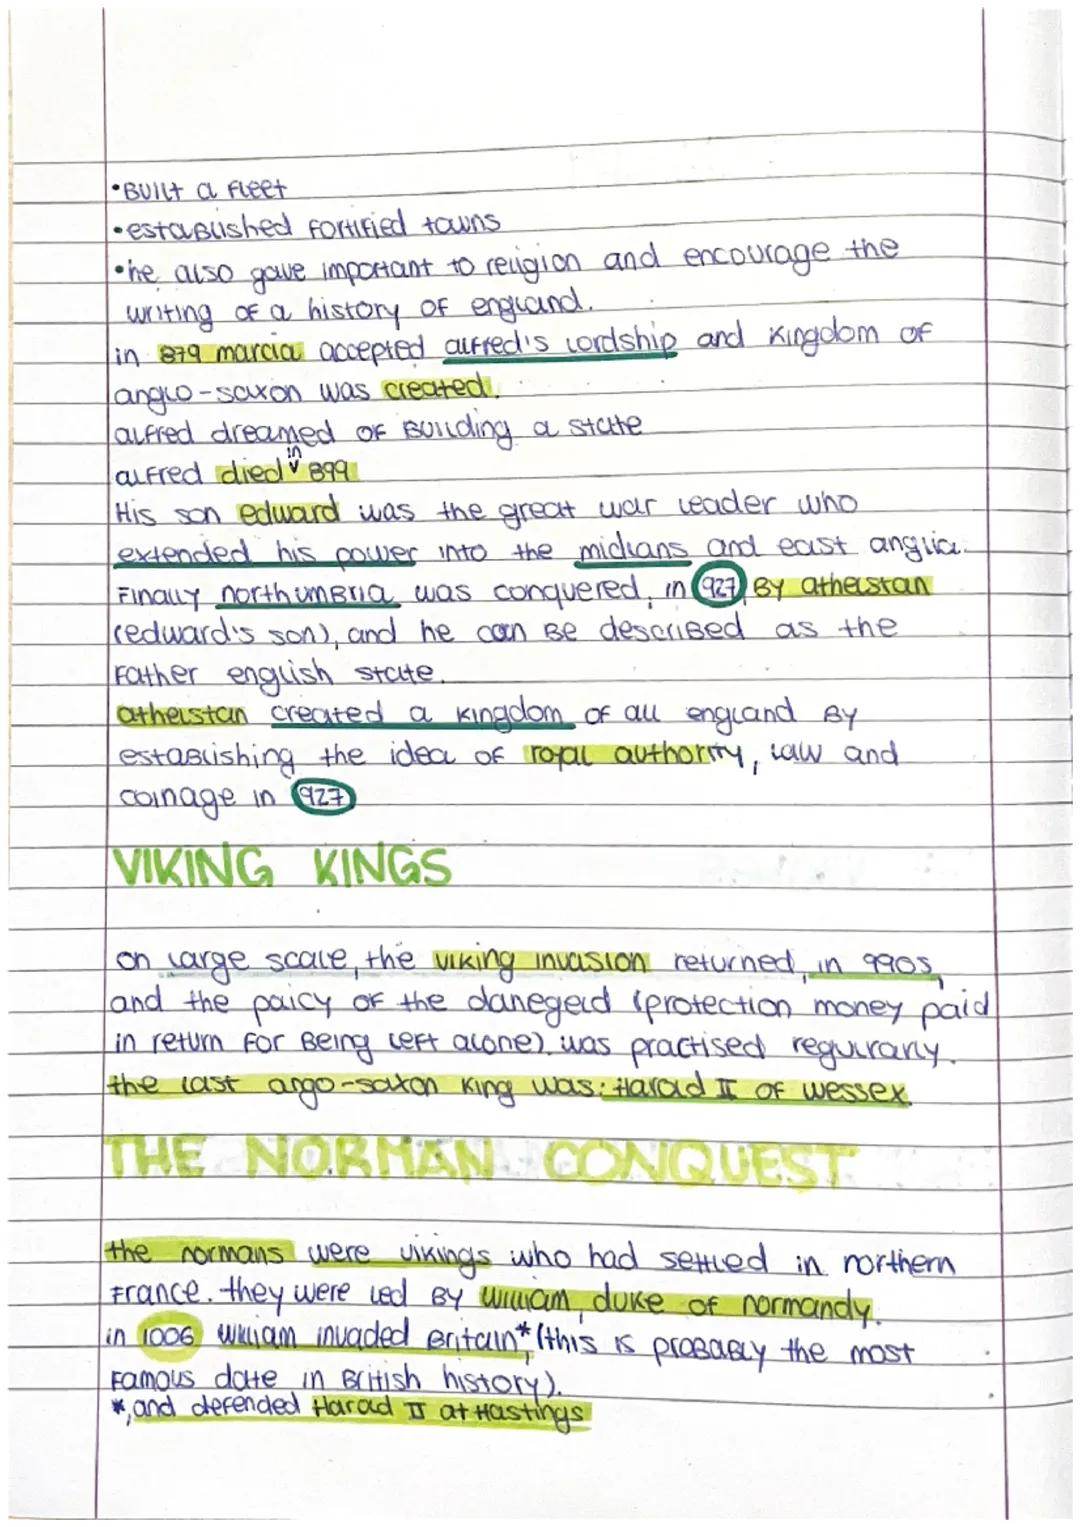 •Built a fleet
•established fortified towns
•he also gave important to religion and encourage the
writing of a history of england.
in 879 marcia accepted alfred's lordship and kingdom of
anglo-saxon was created.
alfred dreamed of Building a state
alfred died in 899
His son edward was the great war leader who
extended his power into the midlans and east anglia.
Finally northumBria was conquered, in 927 By athelstan
(edward's son), and he can Be descriBed as the
Father english state.
athelstan created a kingdom of all england By
estaBlishing the idea of royal authority, law and
coinage in 927
VIKING KINGS
on large scale, the viking invasion returned, in 990s,
and the paicy of the danegeld (protection money paid
in return for Being left alone). was practised regurarly.
the last anglo-saxon king was: Harald II of wessex.
THE NORMAN CONQUEST
the normans were vikings who had settled in northern
France. they were led By william, duke of normandy.
in 1006 william invaded Britain* (this is proBaBly the most
Famous date in British history).
*, and defended Harald II at Hastings